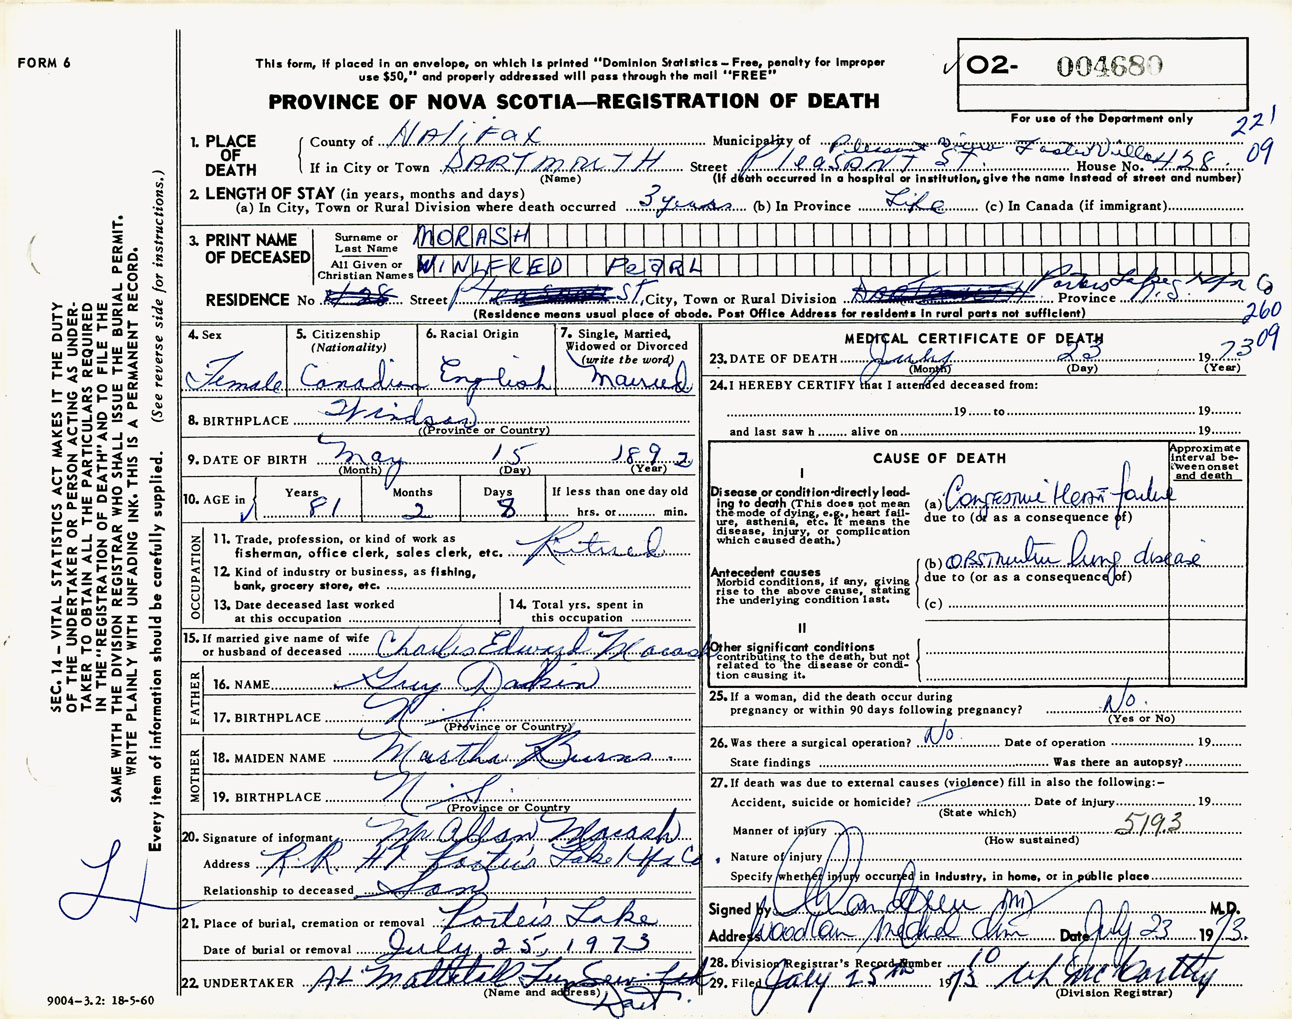 FORM 6
This form, if placed in an envelope, on which is printed "Dominion Statistics – Free, penalty for improper
use $50," and properly addressed will pass through the mail "FREE"
PROVINCE OF NOVA SCOTIA—REGISTRATION OF DEATH
O2- 004680
For use of the Department only
221
09
1. PLACE OF DEATH
County of Halifax Municipality of Pleasant View Foster Villa
If in City or Town DARTMOUTH Street Pleasant St. House No. 428
(Name) (If death occurred in a hospital or institution, give the name instead of street and number)
2. LENGTH OF STAY (in years, months and days)
(a) In City, Town or Rural Division where death occurred 3 years (b) In Province Life (c) In Canada (if immigrant)
3. PRINT NAME OF DECEASED
Surname or Last Name MORASH
All Given or Christian Names WINIFRED PEARL
RESIDENCE No. 428 Street St., City, Town or Rural Division Porters Lake, Hfx Co Province N.S.
(Residence means usual place of abode. Post Office Address for residents in rural parts not sufficient)
260
09
4. Sex Female
5. Citizenship (Nationality) Canadian
6. Racial Origin English
7. Single, Married, Widowed or Divorced (write the word) Married
8. BIRTHPLACE Windsor
(Province or Country)
9. DATE OF BIRTH May 15 1892
(Month) (Day) (Year)
10. AGE in Years 81 Months 2 Days 8 If less than one day old
hrs. or min.
OCCUPATION
11. Trade, profession, or kind of work as fisherman, office clerk, sales clerk, etc. Retired
12. Kind of industry or business, as fishing, bank, grocery store, etc.
13. Date deceased last worked at this occupation
14. Total yrs. spent in this occupation
15. If married give name of wife or husband of deceased Charles Edward Morash
FATHER
16. NAME Guy Dakin
17. BIRTHPLACE N.S.
(Province or Country)
MOTHER
18. MAIDEN NAME Martha Burns
19. BIRTHPLACE N.S.
(Province or Country
20. Signature of informant Mr Allan Morash
Address R.R. #1 Porter's Lake Hfx Co.
Relationship to deceased Son
21. Place of burial, cremation or removal Porter's Lake
Date of burial or removal July 25, 1973
22. UNDERTAKER Fun Serv Ltd
(Name and address) Dart.
MEDICAL CERTIFICATE OF DEATH
23. DATE OF DEATH July 23 1973
(Month) (Day) (Year)
24. I HEREBY CERTIFY that I attended deceased from:
19 to 19
and last saw h alive on 19
CAUSE OF DEATH
Approximate interval between onset and death
I
Disease or condition directly leading to death (This does not mean the mode of dying, e.g., heart failure, asthenia, etc. It means the disease, injury, or complication which caused death.)
(a) Congestive Heart failure
due to (or as a consequence of)
Antecedent causes
Morbid conditions, if any, giving rise to the above cause, stating the underlying condition last.
(b) Obstructive lung disease
due to (or as a consequence of)
(c)
II
Other significant conditions contributing to the death, but not related to the disease or condition causing it.
25. If a woman, did the death occur during pregnancy or within 90 days following pregnancy? No.
(Yes or No)
26. Was there a surgical operation? No. Date of operation 19
State findings Was there an autopsy?
27. If death was due to external causes (violence) fill in also the following:–
Accident, suicide or homicide? Date of injury 19
(State which)
Manner of injury 519.3
(How sustained)
Nature of injury
Specify whether injury occurred in industry, in home, or in public place
Signed by M.D.
Address Woodlawn Medical Clinic Date July 23 1973.
28. Division Registrar's Record Number 10
29. Filed July 25th 1973 McCarthy
(Division Registrar)
SEC. 14 – VITAL STATISTICS ACT MAKES IT THE DUTY
OF THE UNDERTAKER OR PERSON ACTING AS UNDER-
TAKER TO OBTAIN ALL THE PARTICULARS REQUIRED
IN THE "REGISTRATION OF DEATH" AND TO FILE THE
SAME WITH THE DIVISION REGISTRAR WHO SHALL ISSUE THE BURIAL PERMIT.
WRITE PLAINLY WITH UNFADING INK. THIS IS A PERMANENT RECORD.
Every item of information should be carefully supplied. (See reverse side for instructions.)
9004-3.2: 18-5-60